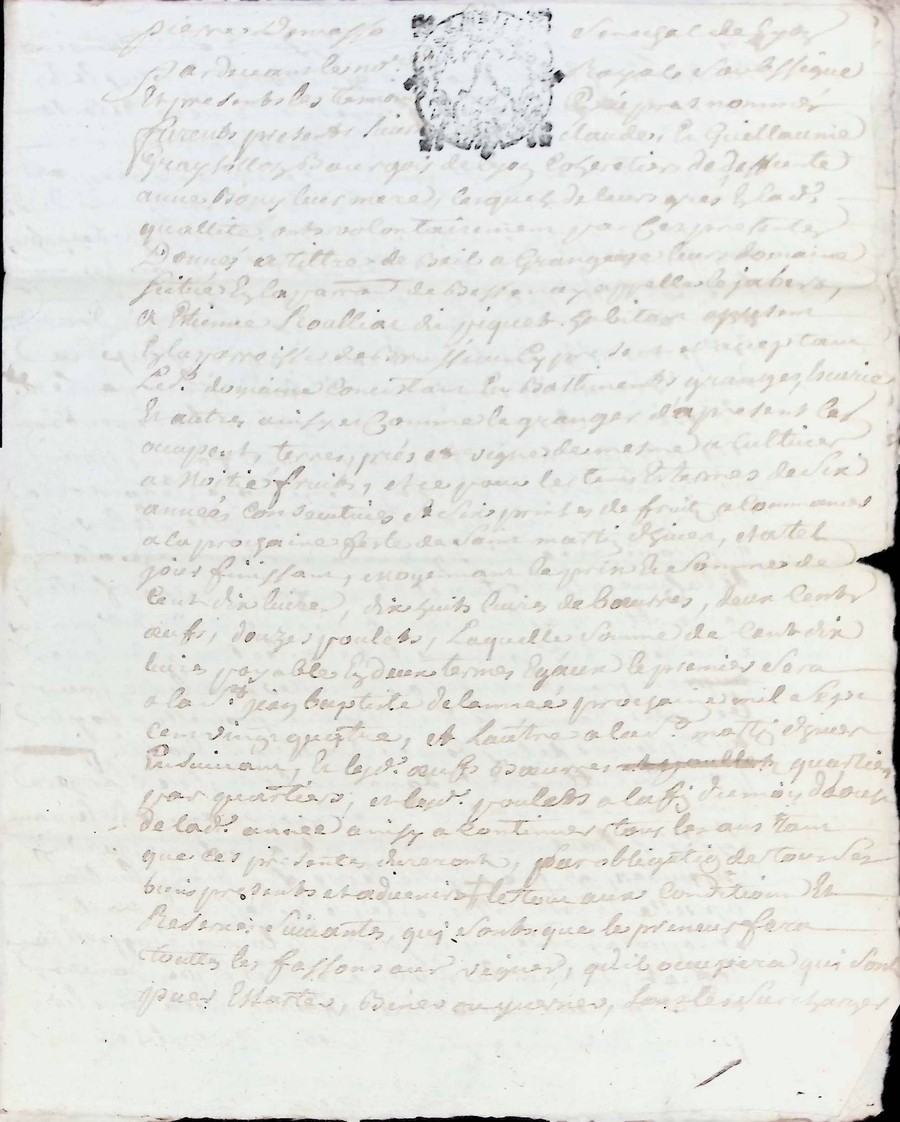 pierre Demasso Senechal de Lyon
Pardevant les no.re Royal Soubssigne
Et presents les temoins Cy apres nommés
furents presents Sieurs claudes Et Guillaume
bourgois de Lyon Coheretiers de deffunte
anne leur mere, lesquels de leurs grés Et lad.
quallité onts volontairement par Ces presentes
Donnés a tiltre de Beil a Grangeage leurs domaine
situé En la parr. de Bessenay appellé le
a Etienne habitant
En la parroisse de Brussieu Cy present et acceptant
Le d. domaine Concistant En Battiments granges Ecurie
Et autres ainsy et Comme le granger d'apresent les
ocupent, terres, prés et vignes de mesme a Cultiver
a Moitié fruits, et ce pour le tems Et termes de Six
années consecutives et Six prinses de fruits a commancer
a la prochaine feste de Saint martin d'hiver, et a tel
jour finissant, moyennant le prix Et Somme de
Cent dix livres, dix huits livres de beurres, deux Cents
œufs, douzes poulets, Laquelle Somme de Cent dix
livres payable En deux termes Egaux le premier Sera
a la St jean baptiste de lanneé prochaine mil Sept
Cent vingt quattre, et Lautre a la St martin d'hiver
Ensuivant, Et lesd. œufs Beurres quartier
par quartier, et lesd. poulets a la fin du moy daoust
de lad. année ainsy a Continuer tous les ans tant
que ces presentes dureront, par obligation de tous Ses
biens presents et advenir le tout aux conditions Et
Reserves Suivantes, qui Sonts que le preneur fera
touttes les fassons aux vignes, qu'il ocupera qui Sont
Biner Sans les Surcharger